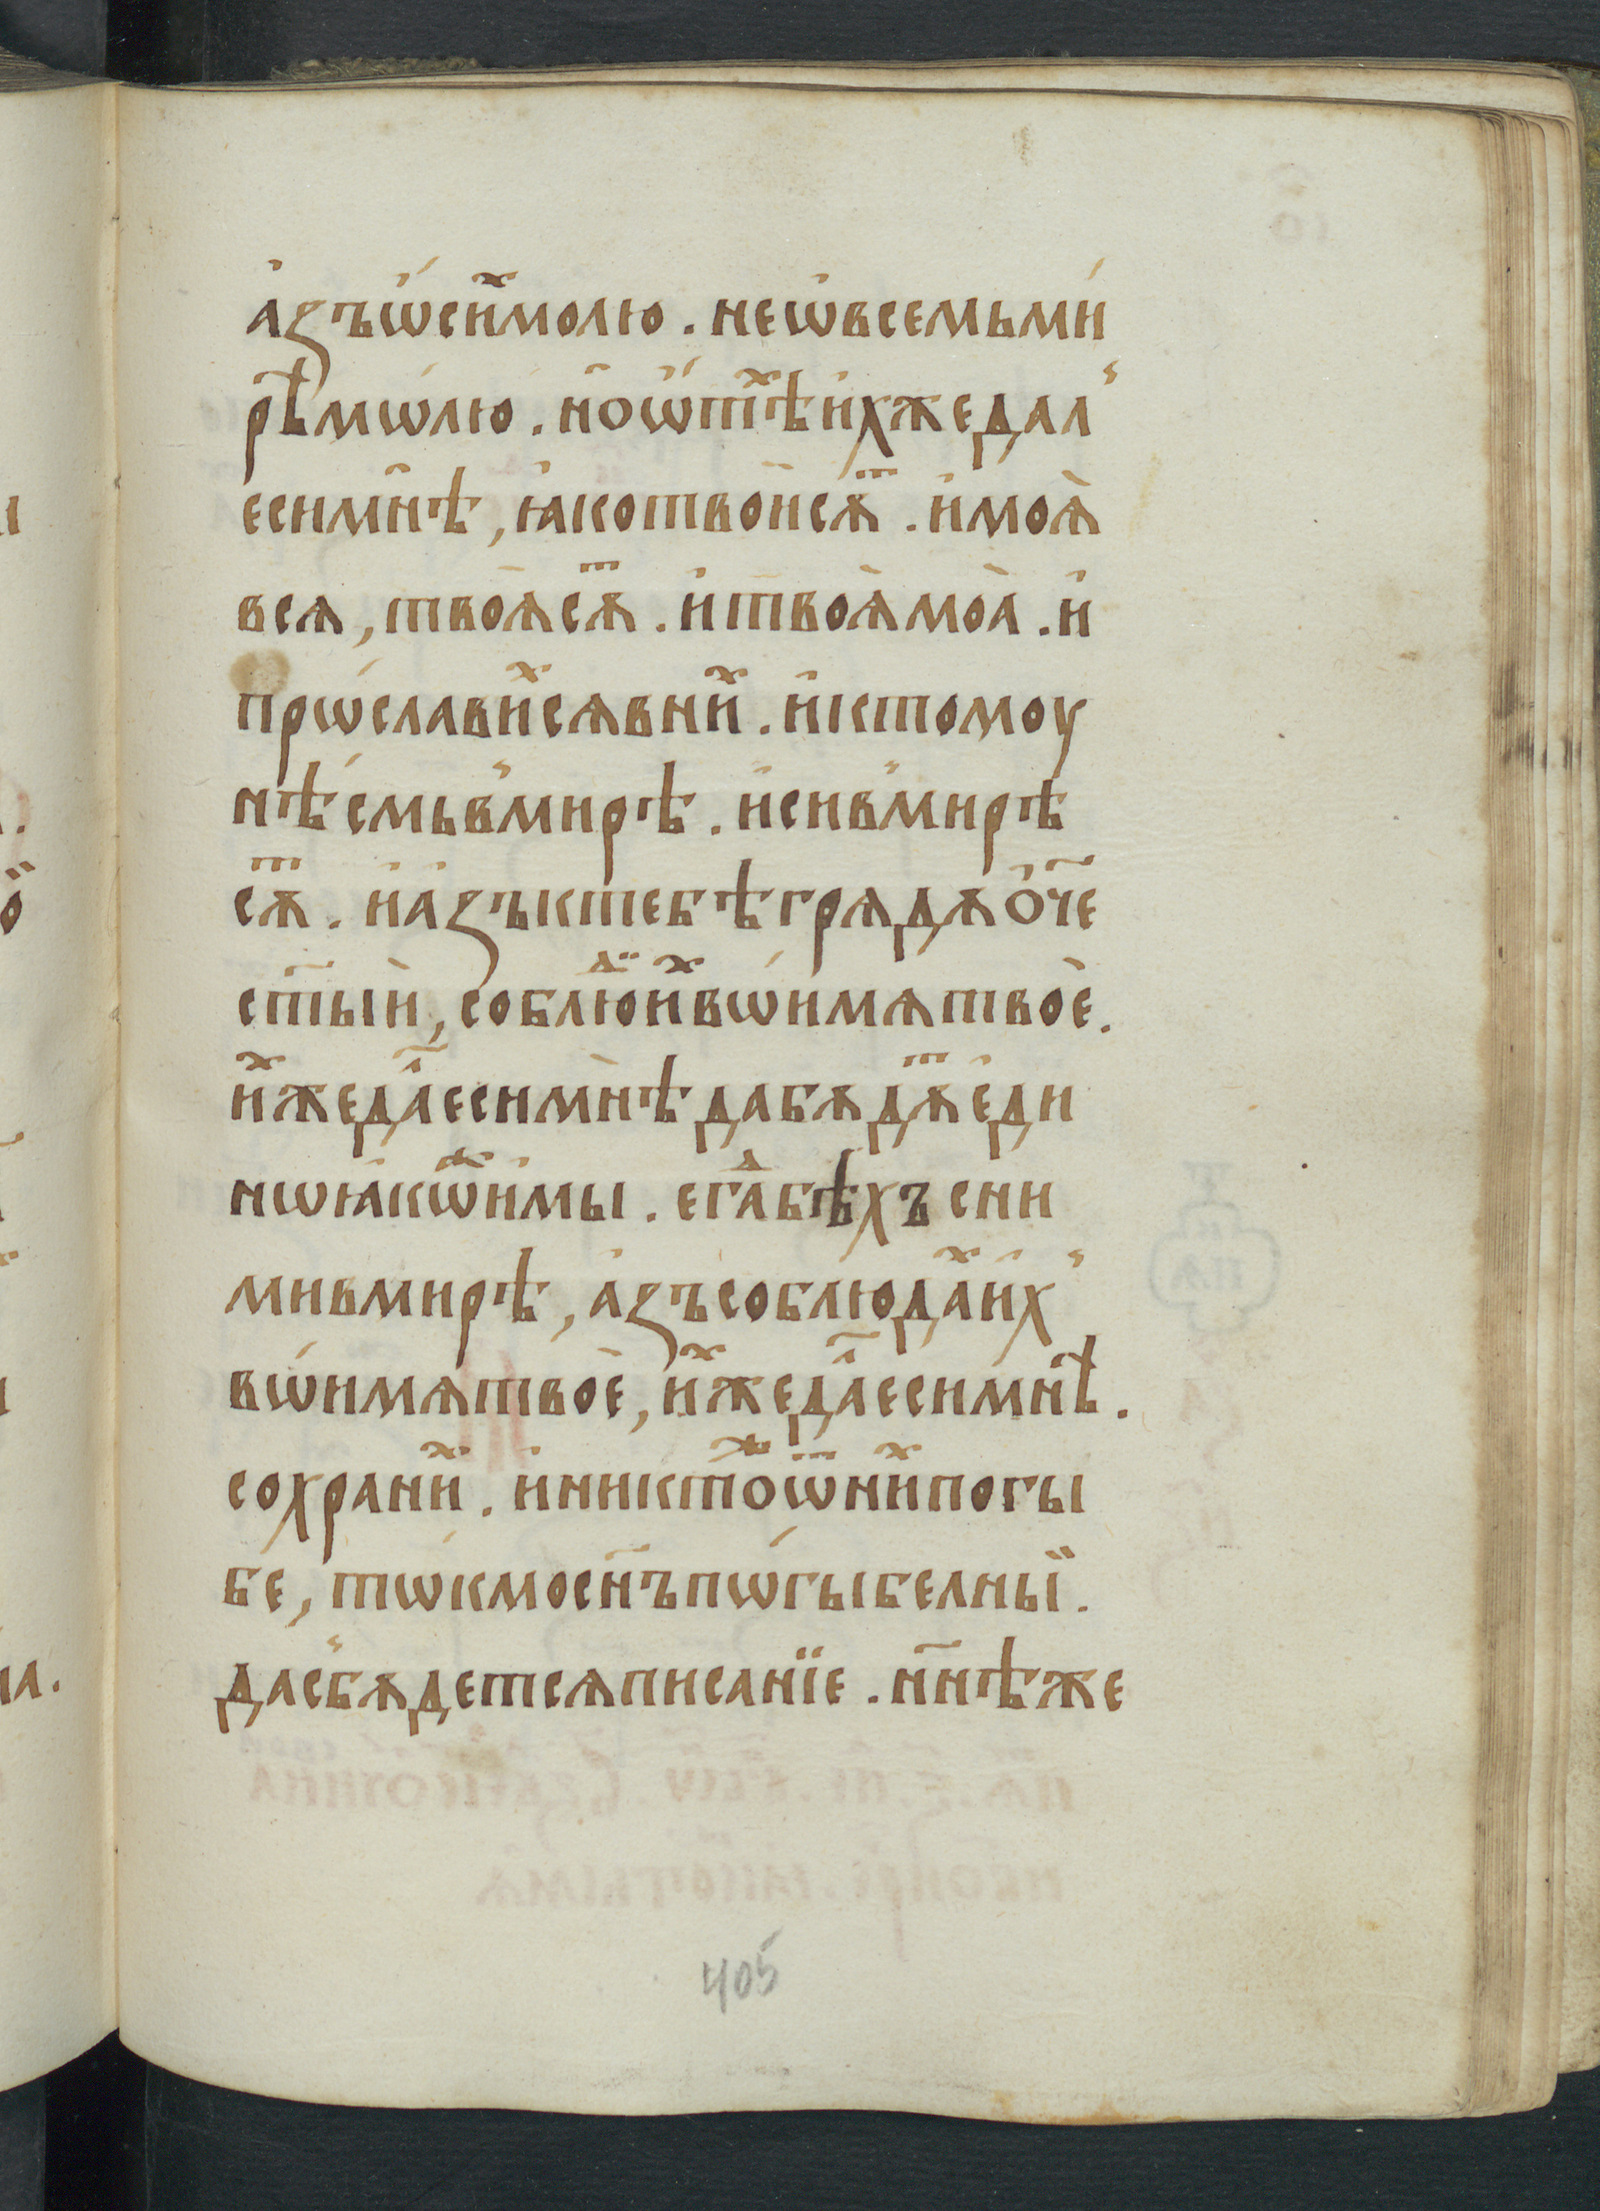 а҆зъѡ҆си́ⷯмолю . неѡ҆всемьми́
рѣ̑мѡ́лю . но̑ѡ҆́тⷯѣи҆хжедал̾
есимн̑ѣ , ꙗ҆котвои̑сѫⷮ . и҆моѧ̀
всѧ , твоѧ̀сѫⷮ . и҆твоѧ̀моа̀ . и҆
прѡ́славиⷯсѧвниⷯ . и҆ктомоу
нѣ́смьв̾мирѣ . и҆сив̾мирѣ
сѫⷮ . и҆а҆зъктебѣгрѧдѫо҆ч҃е
ст҃ыѝ , соблюⷣи҆ⷯвѡ́имѧтвоѐ .
и҆ⷯжедаⷧ҇есимн̀ѣ дабѫдѫⷮе҆ди
нѡꙗ҆кѡⷤи҆мы . егⷣабѣхъ сни
мивмирѣ , а҆зъсоблюдаⷯи҆х̾
вѡ́имѧтвоѐ , и҆ⷯжедаⷧ҇есимн̑ѣ .
сохраниⷯ . и҆никтоⷤѿниⷯпогы
бе , тѡкмосн҃ъпѡ́гыбелнӹ .
дас̾бѫдетсѧписанїе . нн҃ѣже
405